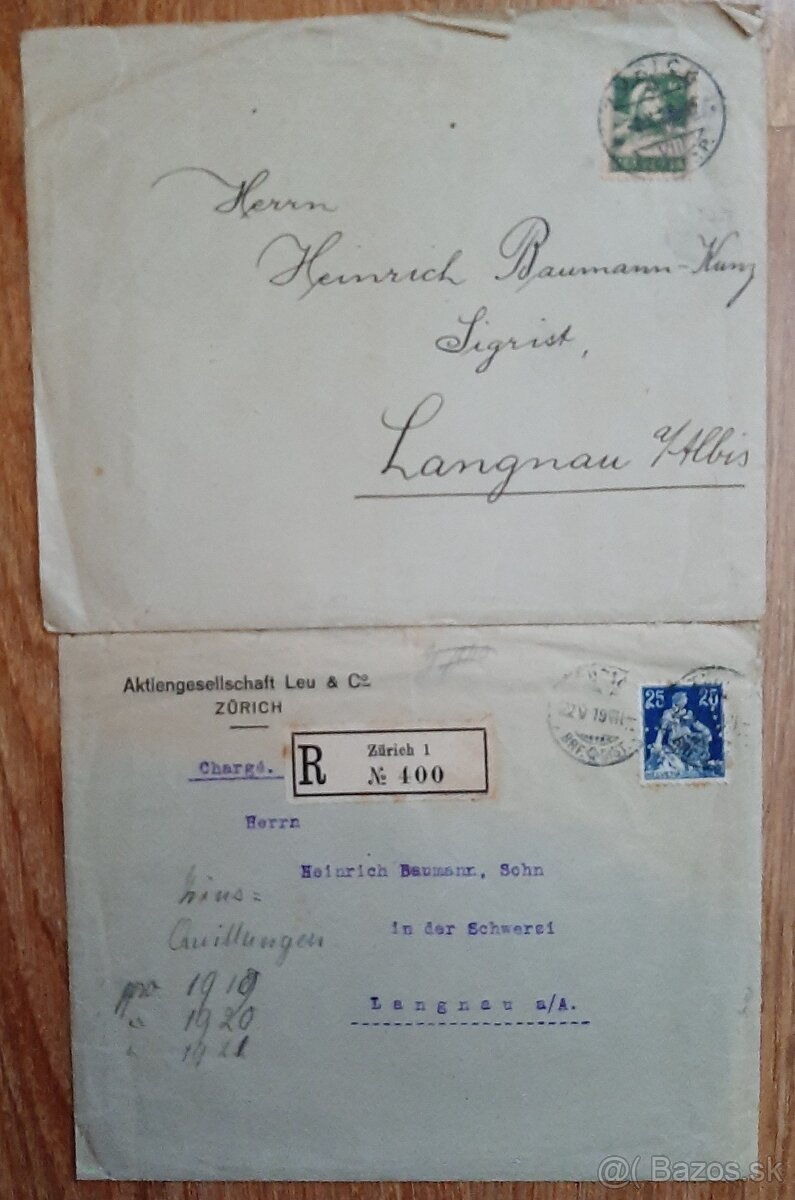 ZÜRICH
Herrn
Heinrich Baumann-Kunz
Sigrist,
Langnau a/Albis
Aktiengesellschaft Leu & Co.
ZÜRICH
Chargé.
R
Zürich 1
№ 400
25 25
HELVETIA
22 V 19
BRF.
Herrn
Heinrich Baumann, Sohn
in der Schwerzi
Langnau a/A.
Zins=
Quittungen
pro 1919
" 1920
" 1921
@( Bazos.sk